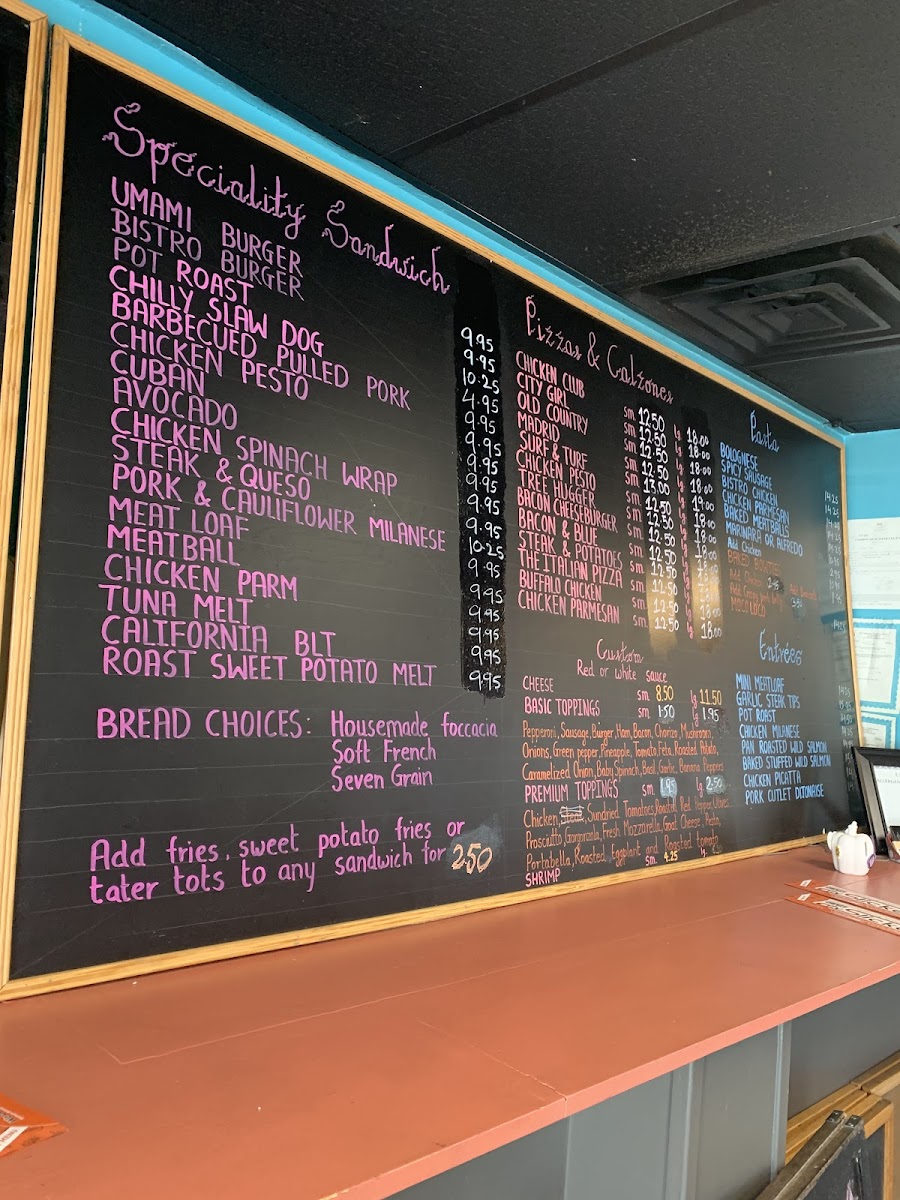 Speciality Sandwich
UMAMI BURGER 9.95
BISTRO BURGER 9.95
POT ROAST 10.25
CHILLY SLAW DOG 4.95
BARBECUED PULLED PORK 9.95
CHICKEN PESTO 9.95
CUBAN 9.95
AVOCADO 9.95
CHICKEN SPINACH WRAP 9.95
STEAK & QUESO 9.95
PORK & CAULIFLOWER MILANESE 10.25
MEAT LOAF 9.95
MEATBALL 9.95
CHICKEN PARM 9.95
TUNA MELT 9.95
CALIFORNIA BLT 9.95
ROAST SWEET POTATO MELT 9.95
BREAD CHOICES: Housemade foccacia
Soft French
Seven Grain
Add fries, sweet potato fries or
tater tots to any sandwich for 2.50
Pizzas & Calzones
CHICKEN CLUB sm 12.50 lg 18.00
CITY GIRL sm 12.50 lg 18.00
OLD COUNTRY sm 12.50 lg 18.00
MADRID sm 12.50 lg 18.00
SURF & TURF sm 13.00 lg 19.00
CHICKEN PESTO sm 12.50 lg 18.00
TREE HUGGER sm 12.50 lg 18.00
BACON CHEESEBURGER sm 12.50 lg 18.00
BACON & BLUE sm 12.50 lg
STEAK & POTATOES sm 12.50 lg
THE ITALIAN PIZZA sm 12.50 lg
BUFFALO CHICKEN sm 12.50 lg 18.00
CHICKEN PARMESAN sm 12.50 lg 18.00
Custom
Red or white sauce
CHEESE sm 8.50 lg 11.50
BASIC TOPPINGS sm 1.50 lg 1.95
Pepperoni, Sausage, Burger, Ham, Bacon, Chorizo, Mushrooms,
Onions, Green pepper, Pineapple, Tomato, Feta, Roasted Potato,
Caramelized Onion, Baby Spinach, Basil, Garlic, Banana Peppers
PREMIUM TOPPINGS sm 1.95 lg 2.50
Chicken, Sundried Tomatoes, Roasted Red Pepper, Olives
Prosciutto, Gorgonzola, Fresh Mozzarella, Goat Cheese, Pesto,
Portabella, Roasted Eggplant and Roasted tomato
SHRIMP sm 4.25 lg
Pasta
BOLOGNESE 14.25
SPICY SAUSAGE
BISTRO CHICKEN
CHICKEN PARMESAN
BAKED MEATBALLS
MARINARA OR ALFREDO
Add Chicken
BAKED
Add Chicken
Entrées
MINI MEATLOAF
GARLIC STEAK TIPS
POT ROAST
CHICKEN MILANESE
PAN ROASTED WILD SALMON
BAKED STUFFED WILD SALMON
CHICKEN PICATTA
PORK CUTLET DIJONAISE